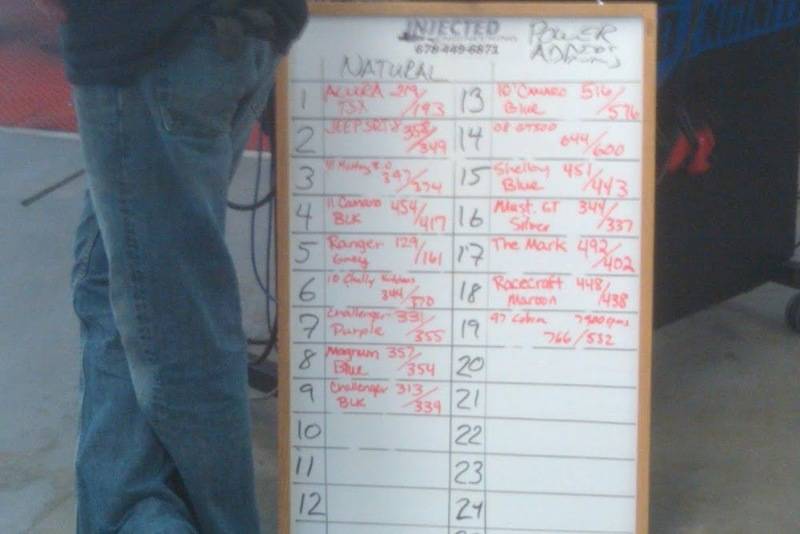 INJECTED
678-449-6873
POWER
ADDERS
NATURAL
1 ACURA 219/193
TSX
2 JEEP SRT8 358/349
3 11 Mustang 5.0
347/374
4 11 Camaro 454/417
BLK
5 Ranger 129/161
Grey
6 10 Chally
344/370
7 Challenger 331/355
Purple
8 Magnum 357/354
Blue
9 Challenger 313/339
BLK
10
11
12
13 10' Camaro 516/576
Blue
14 08 GT500
644/600
15 Shelby 451/443
Blue
16 Must. GT 344/337
Silver
17 The Mark 492/402
18 Racecraft 448/438
Maroon
19 97 Cobra 7900 rpms
766/532
20
21
22
23
24